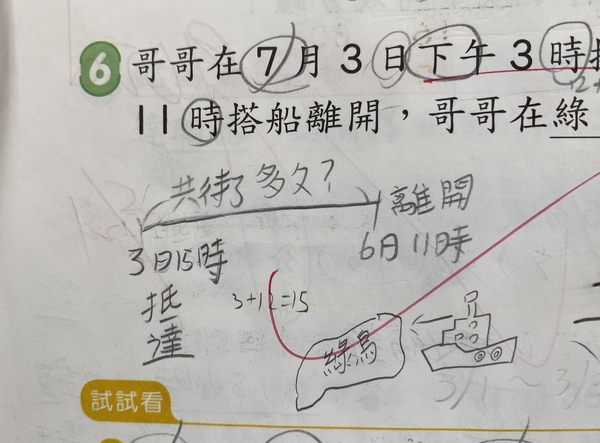 6 哥哥在7月3日下午3時
11時搭船離開，哥哥在綠
共待了多久？
離開
3日15時
6日11時
抵達
3+12=15
綠島
試試看